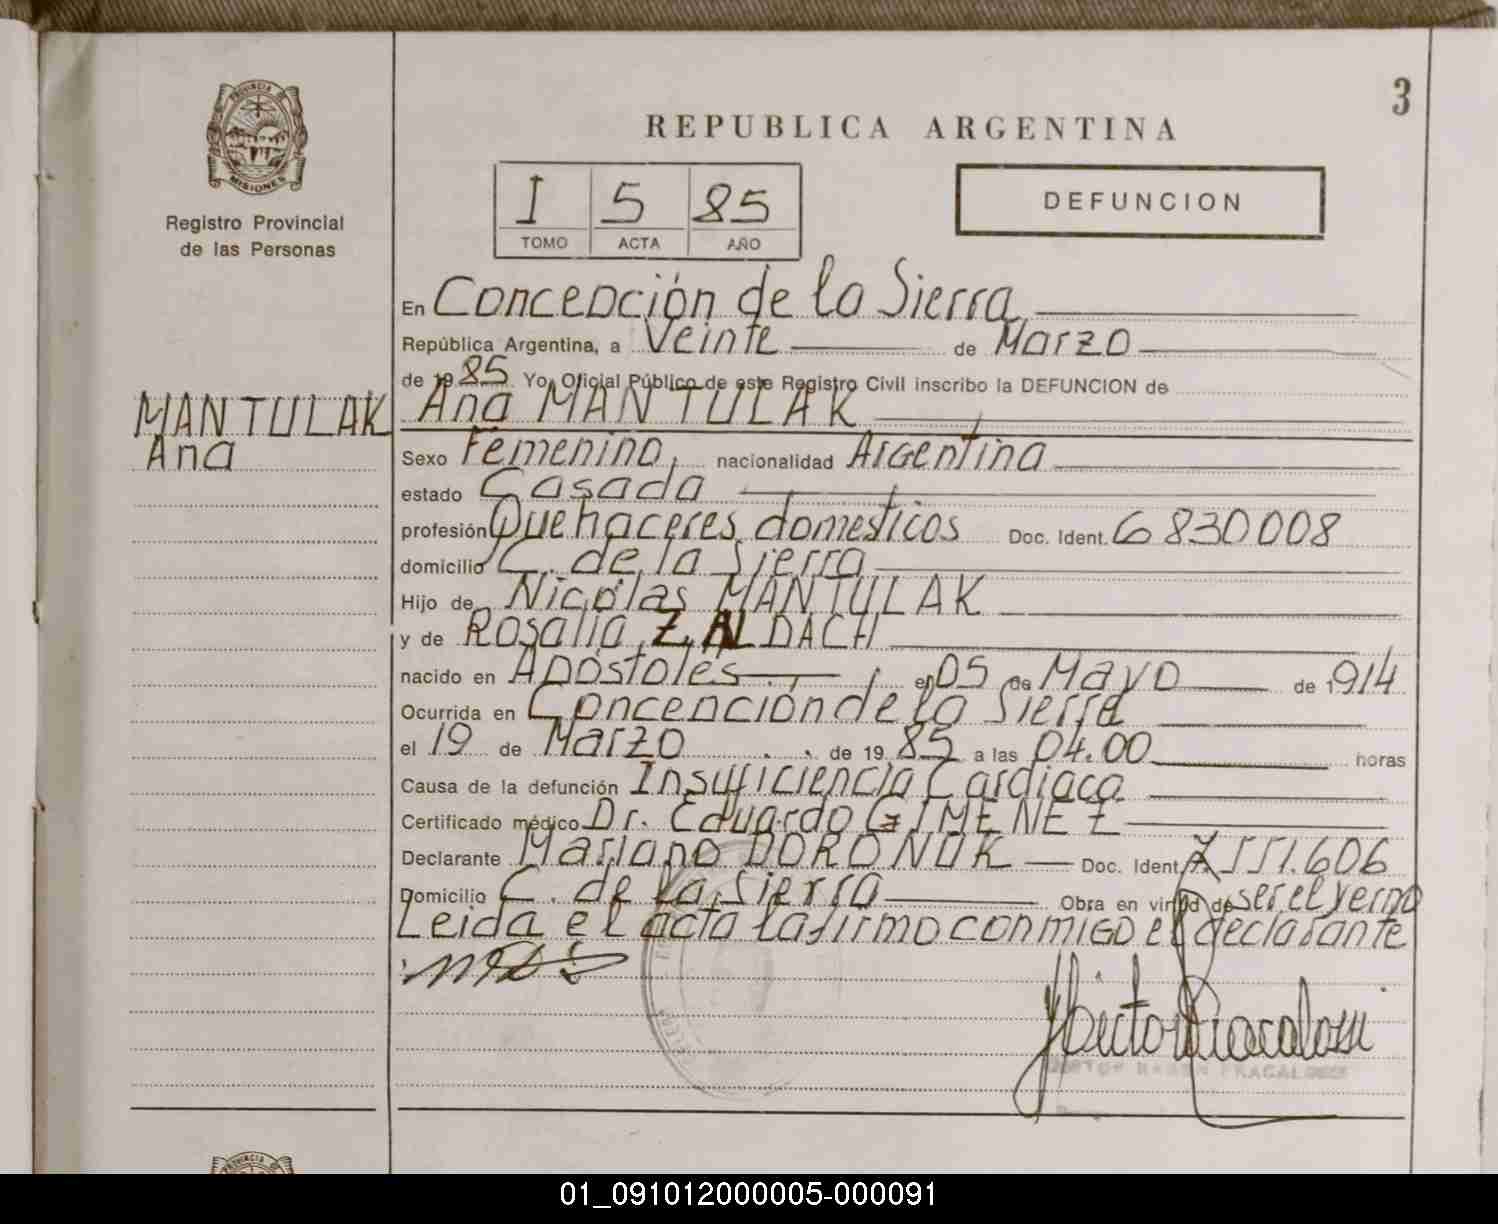 3
PROVINCIA DE
MISIONES
Registro Provincial
de las Personas
REPUBLICA ARGENTINA
I 5 85
TOMO ACTA AÑO
DEFUNCION
En Concepción de la Sierra
República Argentina, a Veinte de Marzo
de 1985 Yo, Oficial Público de este Registro Civil inscribo la DEFUNCION de
MANTULAK Ana MANTULAK
Ana
Sexo Femenino, nacionalidad Argentina
estado Casada
profesión Quehaceres domesticos Doc. Ident. 6830008
domicilio C. de la Sierra
Hijo de Nicolas MANTULAK
y de Rosalia ZALDACH
nacido en Apóstoles en 05 de Mayo de 1914
Ocurrida en Concepción de la Sierra
el 19 de Marzo de 1985 a las 04.00 horas
Causa de la defunción Insuficiencia Cardiaca
Certificado médico Dr. Eduardo GIMENEZ
Declarante Mariano DORONUK Doc. Ident. 7.551.606
Domicilio C. de la Sierra Obra en virtud de ser el yerno
Leida el acta la firmo conmigo el declarante
HECTOR RAMON FRACALOSSI
PROVINCIA DE
01_091012000005-000091